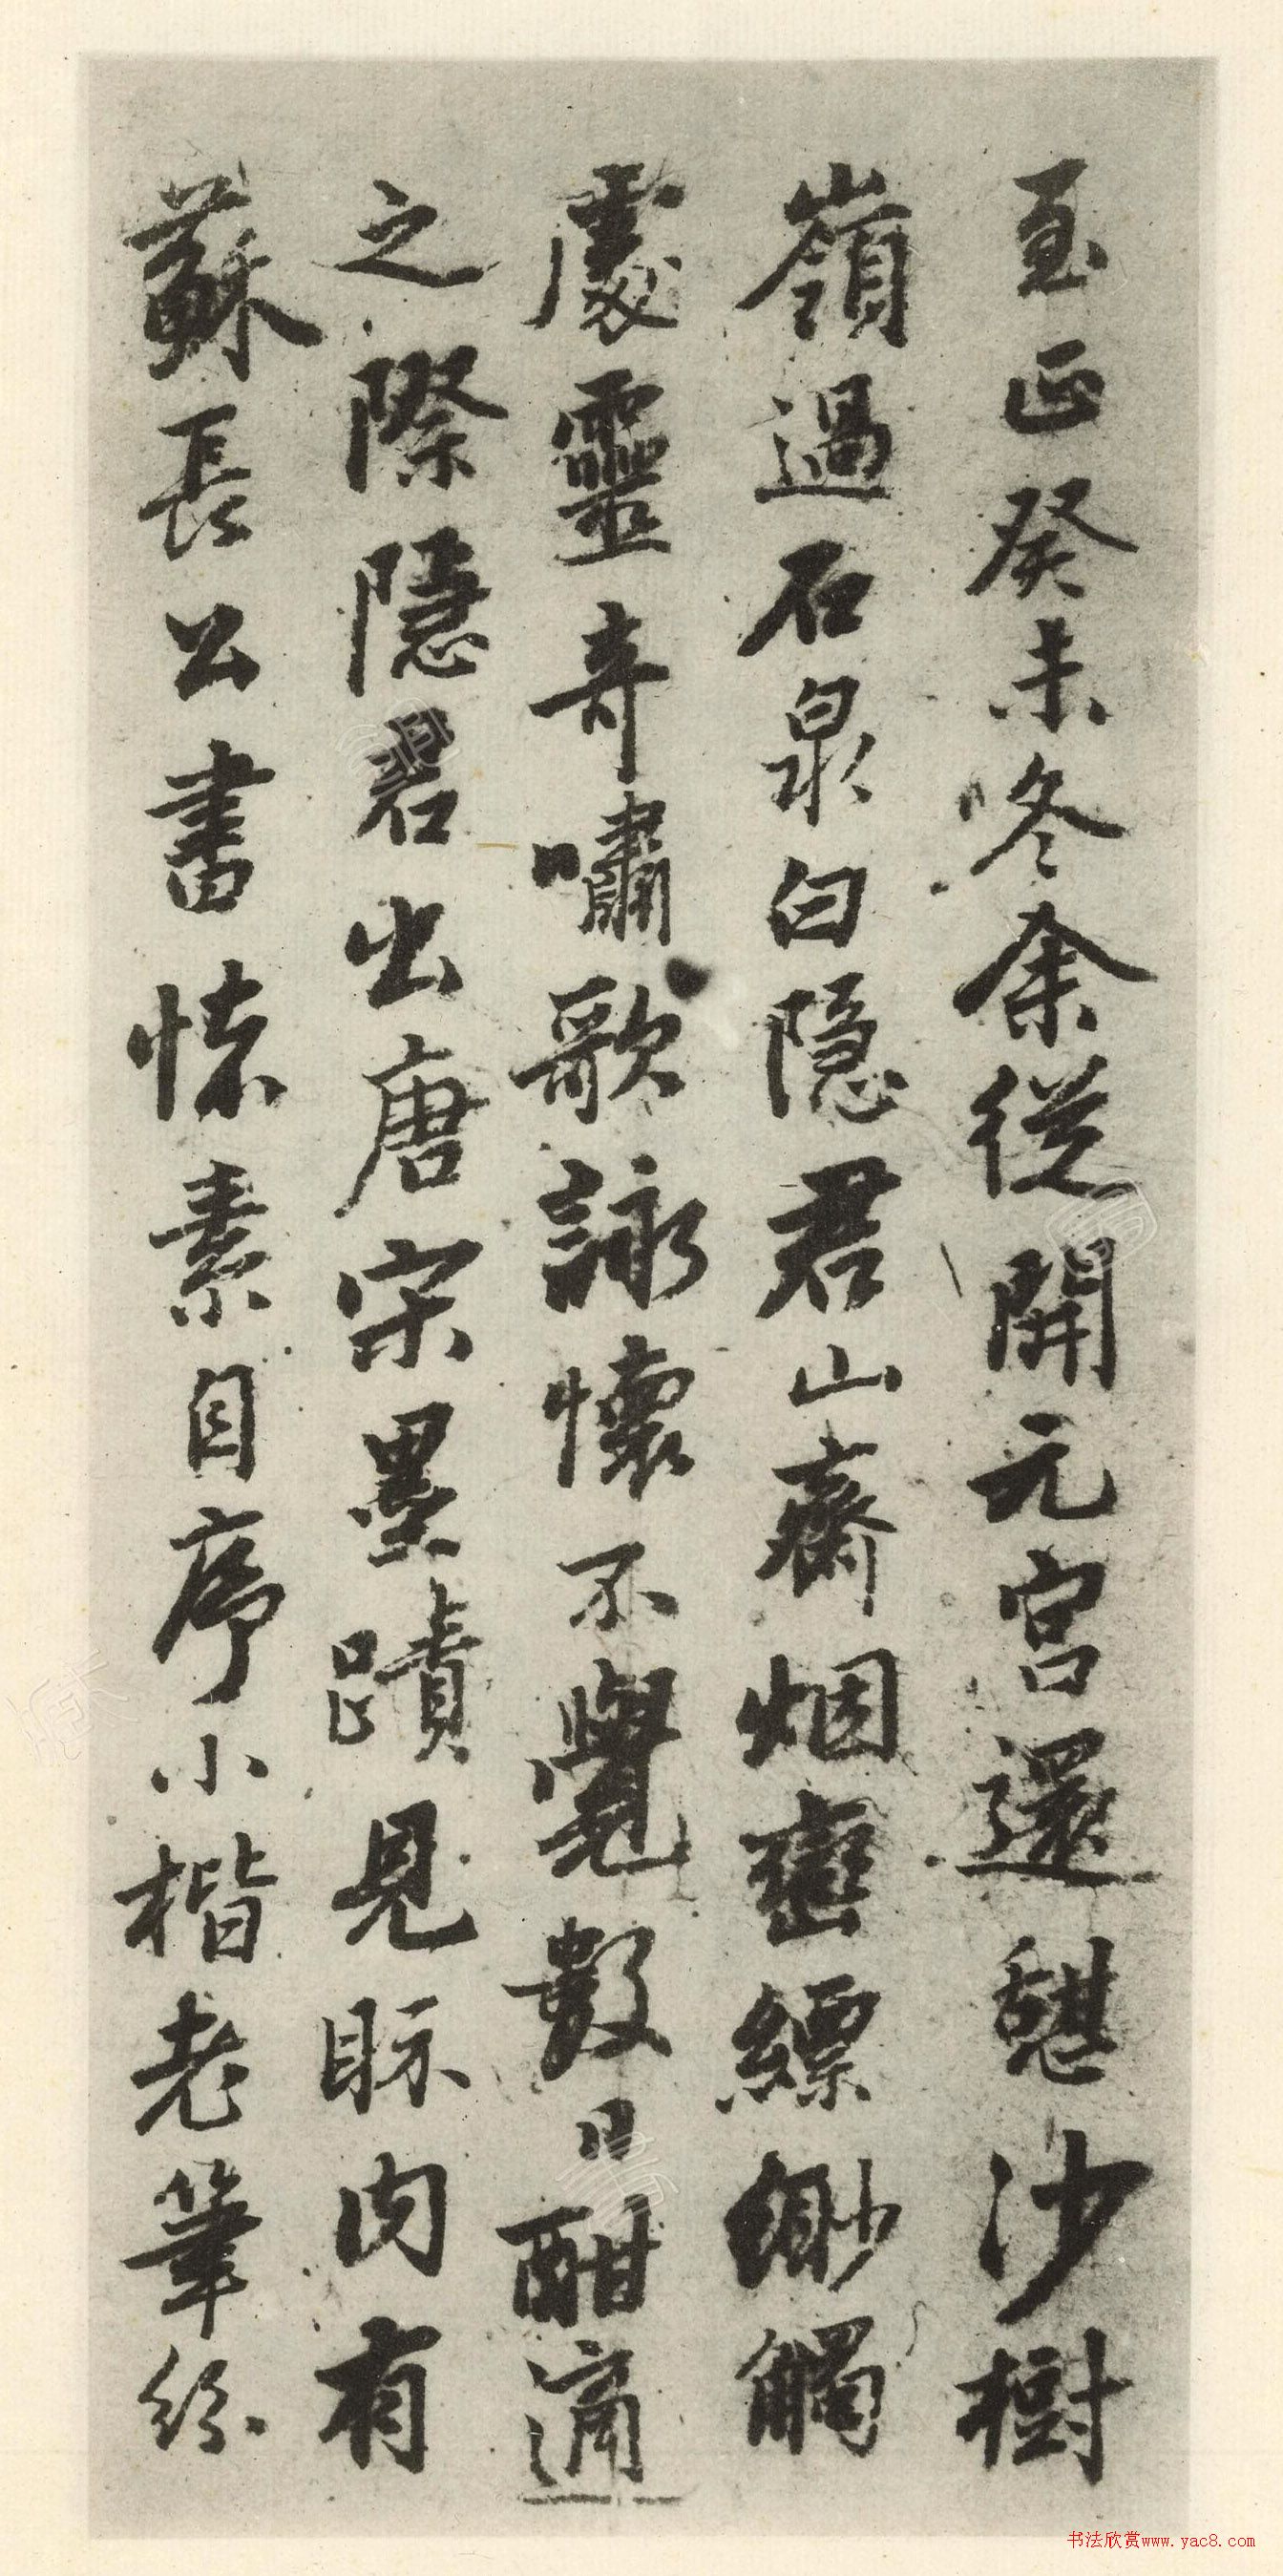 至正癸未冬余從開元宮還憩沙樹
嶺過石泉臼隐君山齋烟巒縹緲觸
處靈竒嘯歌詠懷不覺數日酣適
之際隱君出唐宋墨蹟見眎内有
蘇長公書懷素自序小楷老筆紛
书法欣赏www.yac8.com